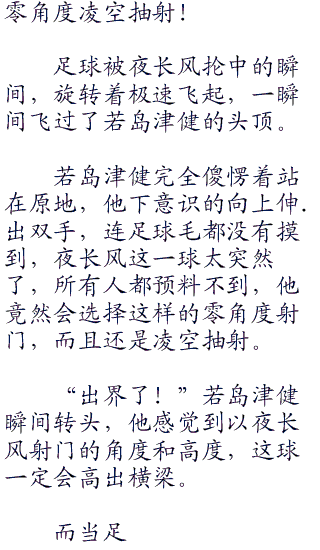 零角度凌空抽射！
足球被夜长风抡中的瞬
间，旋转着极速飞起，一瞬
间飞过了若岛津健的头顶。
若岛津健完全傻愣着站
在原地，他下意识的向上伸.
出双手，连足球毛都没有摸
到，夜长风这一球太突然
了，所有人都预料不到，他
竟然会选择这样的零角度射
门，而且还是凌空抽射。
“出界了！”若岛津健
瞬间转头，他感觉到以夜长
风射门的角度和高度，这球
一定会高出横梁。
而当足